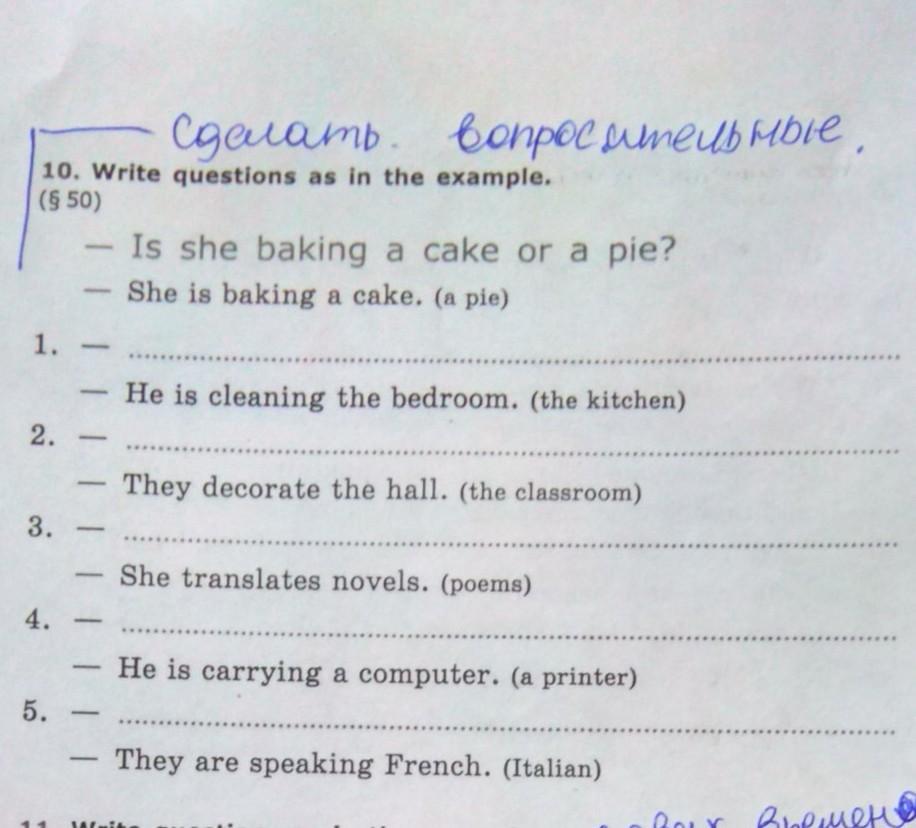 Сделать. вопросительные.
10. Write questions as in the example.
(§ 50)
— Is she baking a cake or a pie?
— She is baking a cake. (a pie)
1. — ................................................................
— He is cleaning the bedroom. (the kitchen)
2. — ................................................................
— They decorate the hall. (the classroom)
3. — ................................................................
— She translates novels. (poems)
4. — ................................................................
— He is carrying a computer. (a printer)
5. — ................................................................
— They are speaking French. (Italian)
11. Write